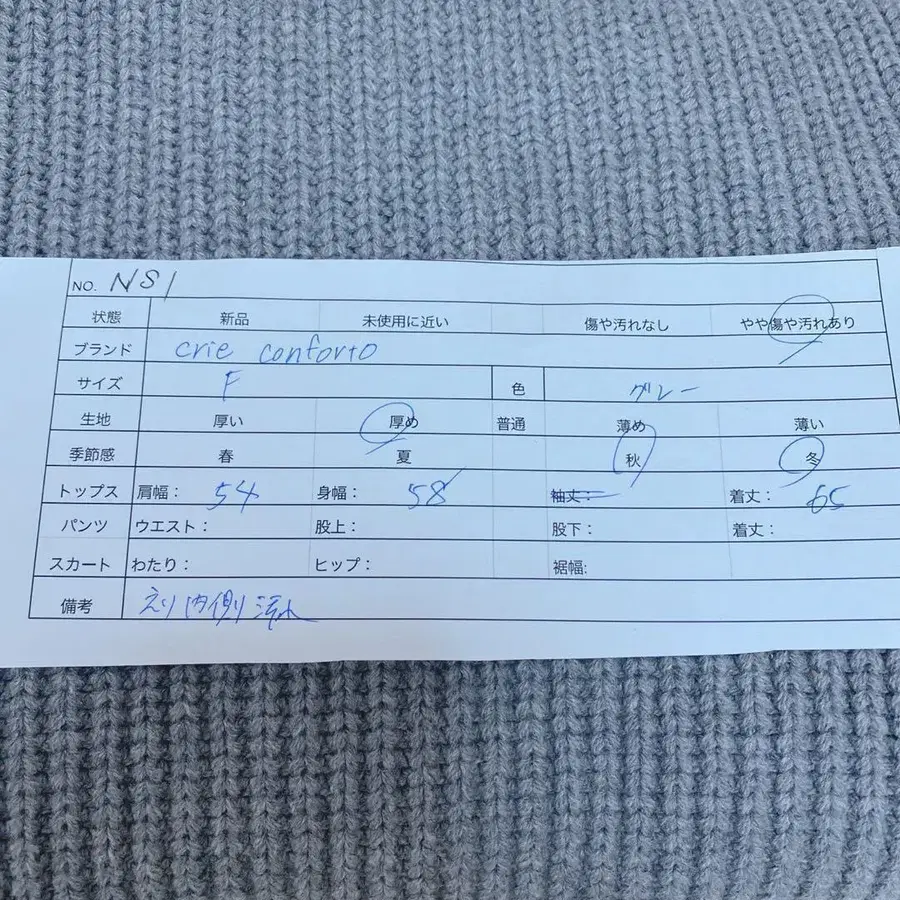 NO. NS1
状態 新品 未使用に近い 傷や汚れなし やや傷や汚れあり
ブランド crie conforto
サイズ F 色 グレー
生地 厚い 厚め 普通 薄め 薄い
季節感 春 夏 秋 冬
トップス 肩幅： 54 身幅： 58 袖丈： 着丈： 65
パンツ ウエスト： 股上： 股下： 着丈：
スカート わたり： ヒップ： 裾幅:
備考 えり内側汚れ